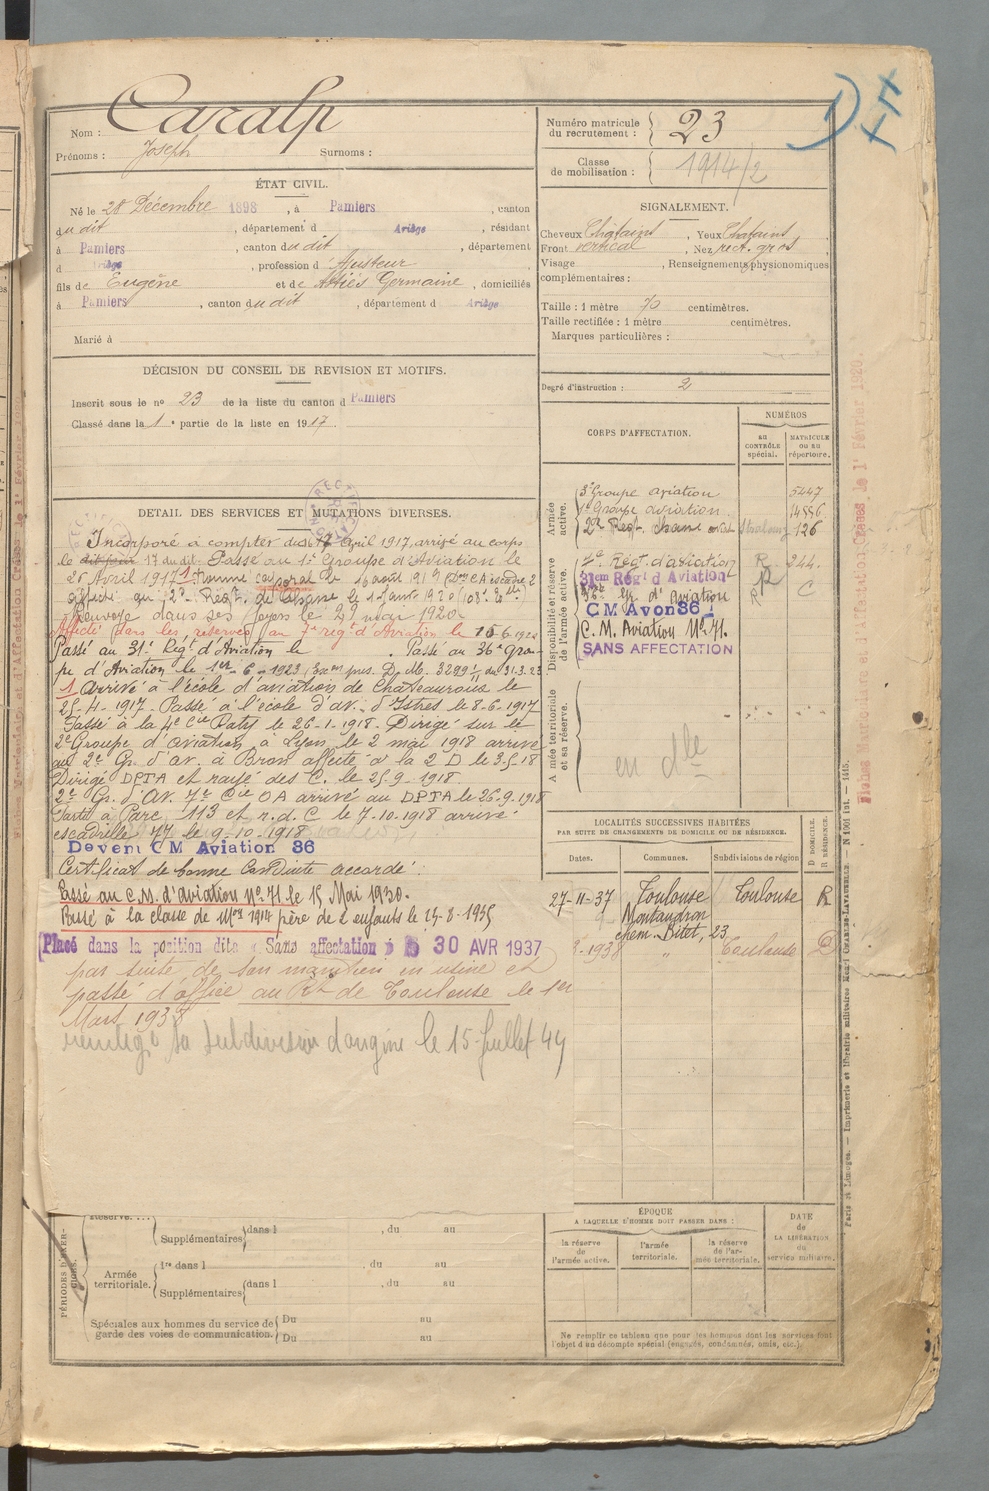 Nom : Caralp
Prénoms : Joseph Surnoms :
ÉTAT CIVIL.
Né le 28 Décembre 1898, à Pamiers, canton
du dit, département d Ariège, résidant
à Pamiers, canton du dit, département
d Ariège, profession d'Ajusteur
fils de Eugène et de Germaine, domiciliés
à Pamiers, canton du dit, département d Ariège
Marié à
DÉCISION DU CONSEIL DE REVISION ET MOTIFS.
Inscrit sous le nº 23 de la liste du canton d Pamiers
Classé dans la 1e partie de la liste en 1917.
DÉTAIL DES SERVICES ET MUTATIONS DIVERSES.
Incorporé à compter du 17 Avril 1917, arrivé au corps
le 17 du dit. Passé au 1r Groupe d'Aviation le
Avril 1917
affecté au 2e Régt. de Chasse le 1 janv 1920
Renvoyé dans ses foyers le 29 mai 1920
Affecté dans les réserves au 7e régt d'Aviation le
Passé au 31e Régt d'Aviation le . Passé au 36e Grou-
pe d'Aviation le 1er-6-1923 D.M. du 31.3.23
1 Arrivé à l'école d'aviation de Chateauroux le
25-4-1917. Passé à l'école d'av. d'Istres le 8-6-1917
Passé à la 4e Cie le 26-1-1918. Dirigé sur le
2e Groupe d'aviation à Lyon le 2 mai 1918 arrivé
au 2e Gr. d'av. à Bron affecté à la 2 D le 3.5.18
Dirigé DPTA et rayé des C. le 25-9-1918.
2e Gr. d'Av. 7e Cie OA arrivé au DPTA le 26-9-1918
Parti à Parc 113 et r.d.C le 7-10-1918 arrivé
escadrille 77 le 9-10-1918
Devenu CM Aviation 36
Certificat de bonne Conduite accordé.
Passé au C.M. d'Aviation Nº 71 le 15 Mai 1930.
Passé à la classe de Mon 1914 père de 2 enfants le -8-1935
Placé dans la position dite « Sans affectation » le 30 AVR 1937
par suite de son maintien en usine et
passé d'office au Rt de Toulouse le 1er
Mars 1938
réintégré sa subdivision d'origine le 15 Juillet 44
Réserve....
Supplémentaires dans l , du au
PÉRIODES D'EXERCICES.
Armée territoriale.
1re dans l , du au
Supplémentaires dans l , du au
Spéciales aux hommes du service de garde des voies de communication.
Du au
Du au
Numéro matricule du recrutement : 23
Classe de mobilisation : 1914/2
DE
SIGNALEMENT.
Cheveux Chatains, Yeux Chatains
Front vertical, Nez rect. gros
Visage , Renseignements physionomiques
complémentaires :
Taille : 1 mètre 70 centimètres.
Taille rectifiée : 1 mètre centimètres.
Marques particulières :
Degré d'instruction : 2
CORPS D'AFFECTATION.
NUMÉROS
au contrôle spécial.
MATRICULE ou au répertoire.
Armée active.
3e Groupe aviation 5447
1r Groupe aviation 14556
2e Regt. 126
Disponibilité et réserve de l'armée active.
7e Régt. d'aviation R 244
31em Régt d'Aviation R
36e Gr. d'Aviation R C
CM Avon 36
C. M. Aviation Nº 71.
SANS AFFECTATION
Armée territoriale et sa réserve.
en dlle
LOCALITÉS SUCCESSIVES HABITÉES
PAR SUITE DE CHANGEMENTS DE DOMICILE OU DE RÉSIDENCE.
Dates. Communes. Subdivisions de région
D DOMICILE.
R RÉSIDENCE.
27-11-37 Toulouse Toulouse R
9, Montaudran
chem. Bitet, 23
3-1938 " Toulouse D
ÉPOQUE
A LAQUELLE L'HOMME DOIT PASSER DANS :
la réserve de l'armée active.
l'armée territoriale.
la réserve de l'armée territoriale.
DATE de LA LIBÉRATION du service militaire.
Ne remplir ce tableau que pour les hommes dont les services font
l'objet d'un décompte spécial (engagés, condamnés, omis, etc.).
Paris et Limoges. — Imprimerie et librairie militaires Henri CHARLES-LAVAUZELLE.
Fiches Matricule et d'Affectation Créées le 1r Février 1920.